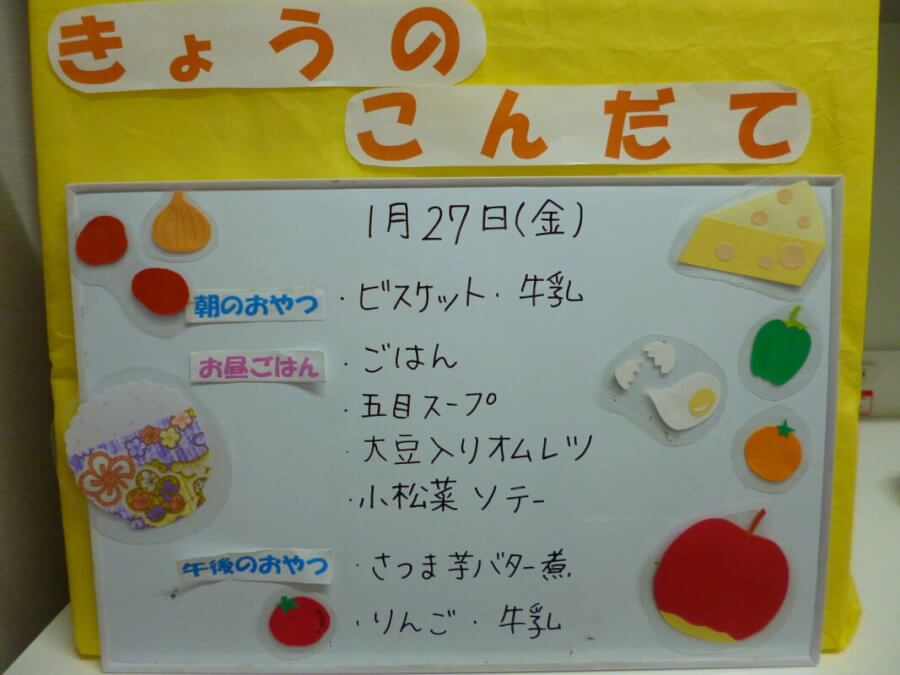 きょうの
こんだて
1月27日(金)
朝のおやつ ・ビスケット・牛乳
お昼ごはん ・ごはん
・五目スープ
・大豆入りオムレツ
・小松菜ソテー
午後のおやつ ・さつま芋バター煮
・りんご・牛乳